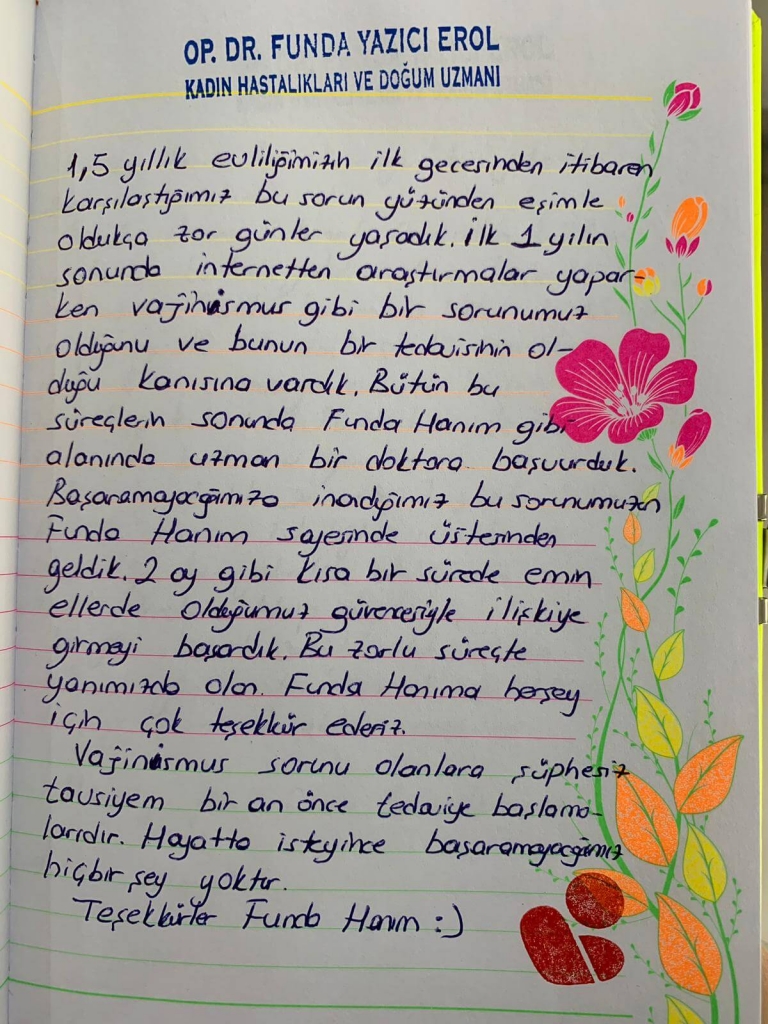 OP. DR. FUNDA YAZICI EROL
KADIN HASTALIKLARI VE DOĞUM UZMANI
1,5 yıllık evliliğimizin ilk gecesinden itibaren
karşılaştığımız bu sorun yüzünden eşimle
oldukça zor günler yaşadık. İlk 1 yılın
sonunda internetten araştırmalar yapar-
ken vajinismus gibi bir sorunumuz
olduğunu ve bunun bir tedavisinin ol-
duğu kanısına vardık. Bütün bu
süreçlerin sonunda Funda Hanım gibi
alanında uzman bir doktora başvurduk.
Başaramayacağımıza inandığımız bu sorunumuzun
Funda Hanım sayesinde üstesinden
geldik. 2 ay gibi kısa bir sürede emin
ellerde olduğumuz güvencesiyle ilişkiye
girmeyi başardık. Bu zorlu süreçte
yanımızda olan Funda Hanıma herşey
için çok teşekkür ederiz.
Vajinismus sorunu olanlara şüphesiz
tavsiyem bir an önce tedaviye başlama-
larıdır. Hayatta isteyince başaramayacağımız
hiçbir şey yoktur.
Teşekkürler Funda Hanım :)